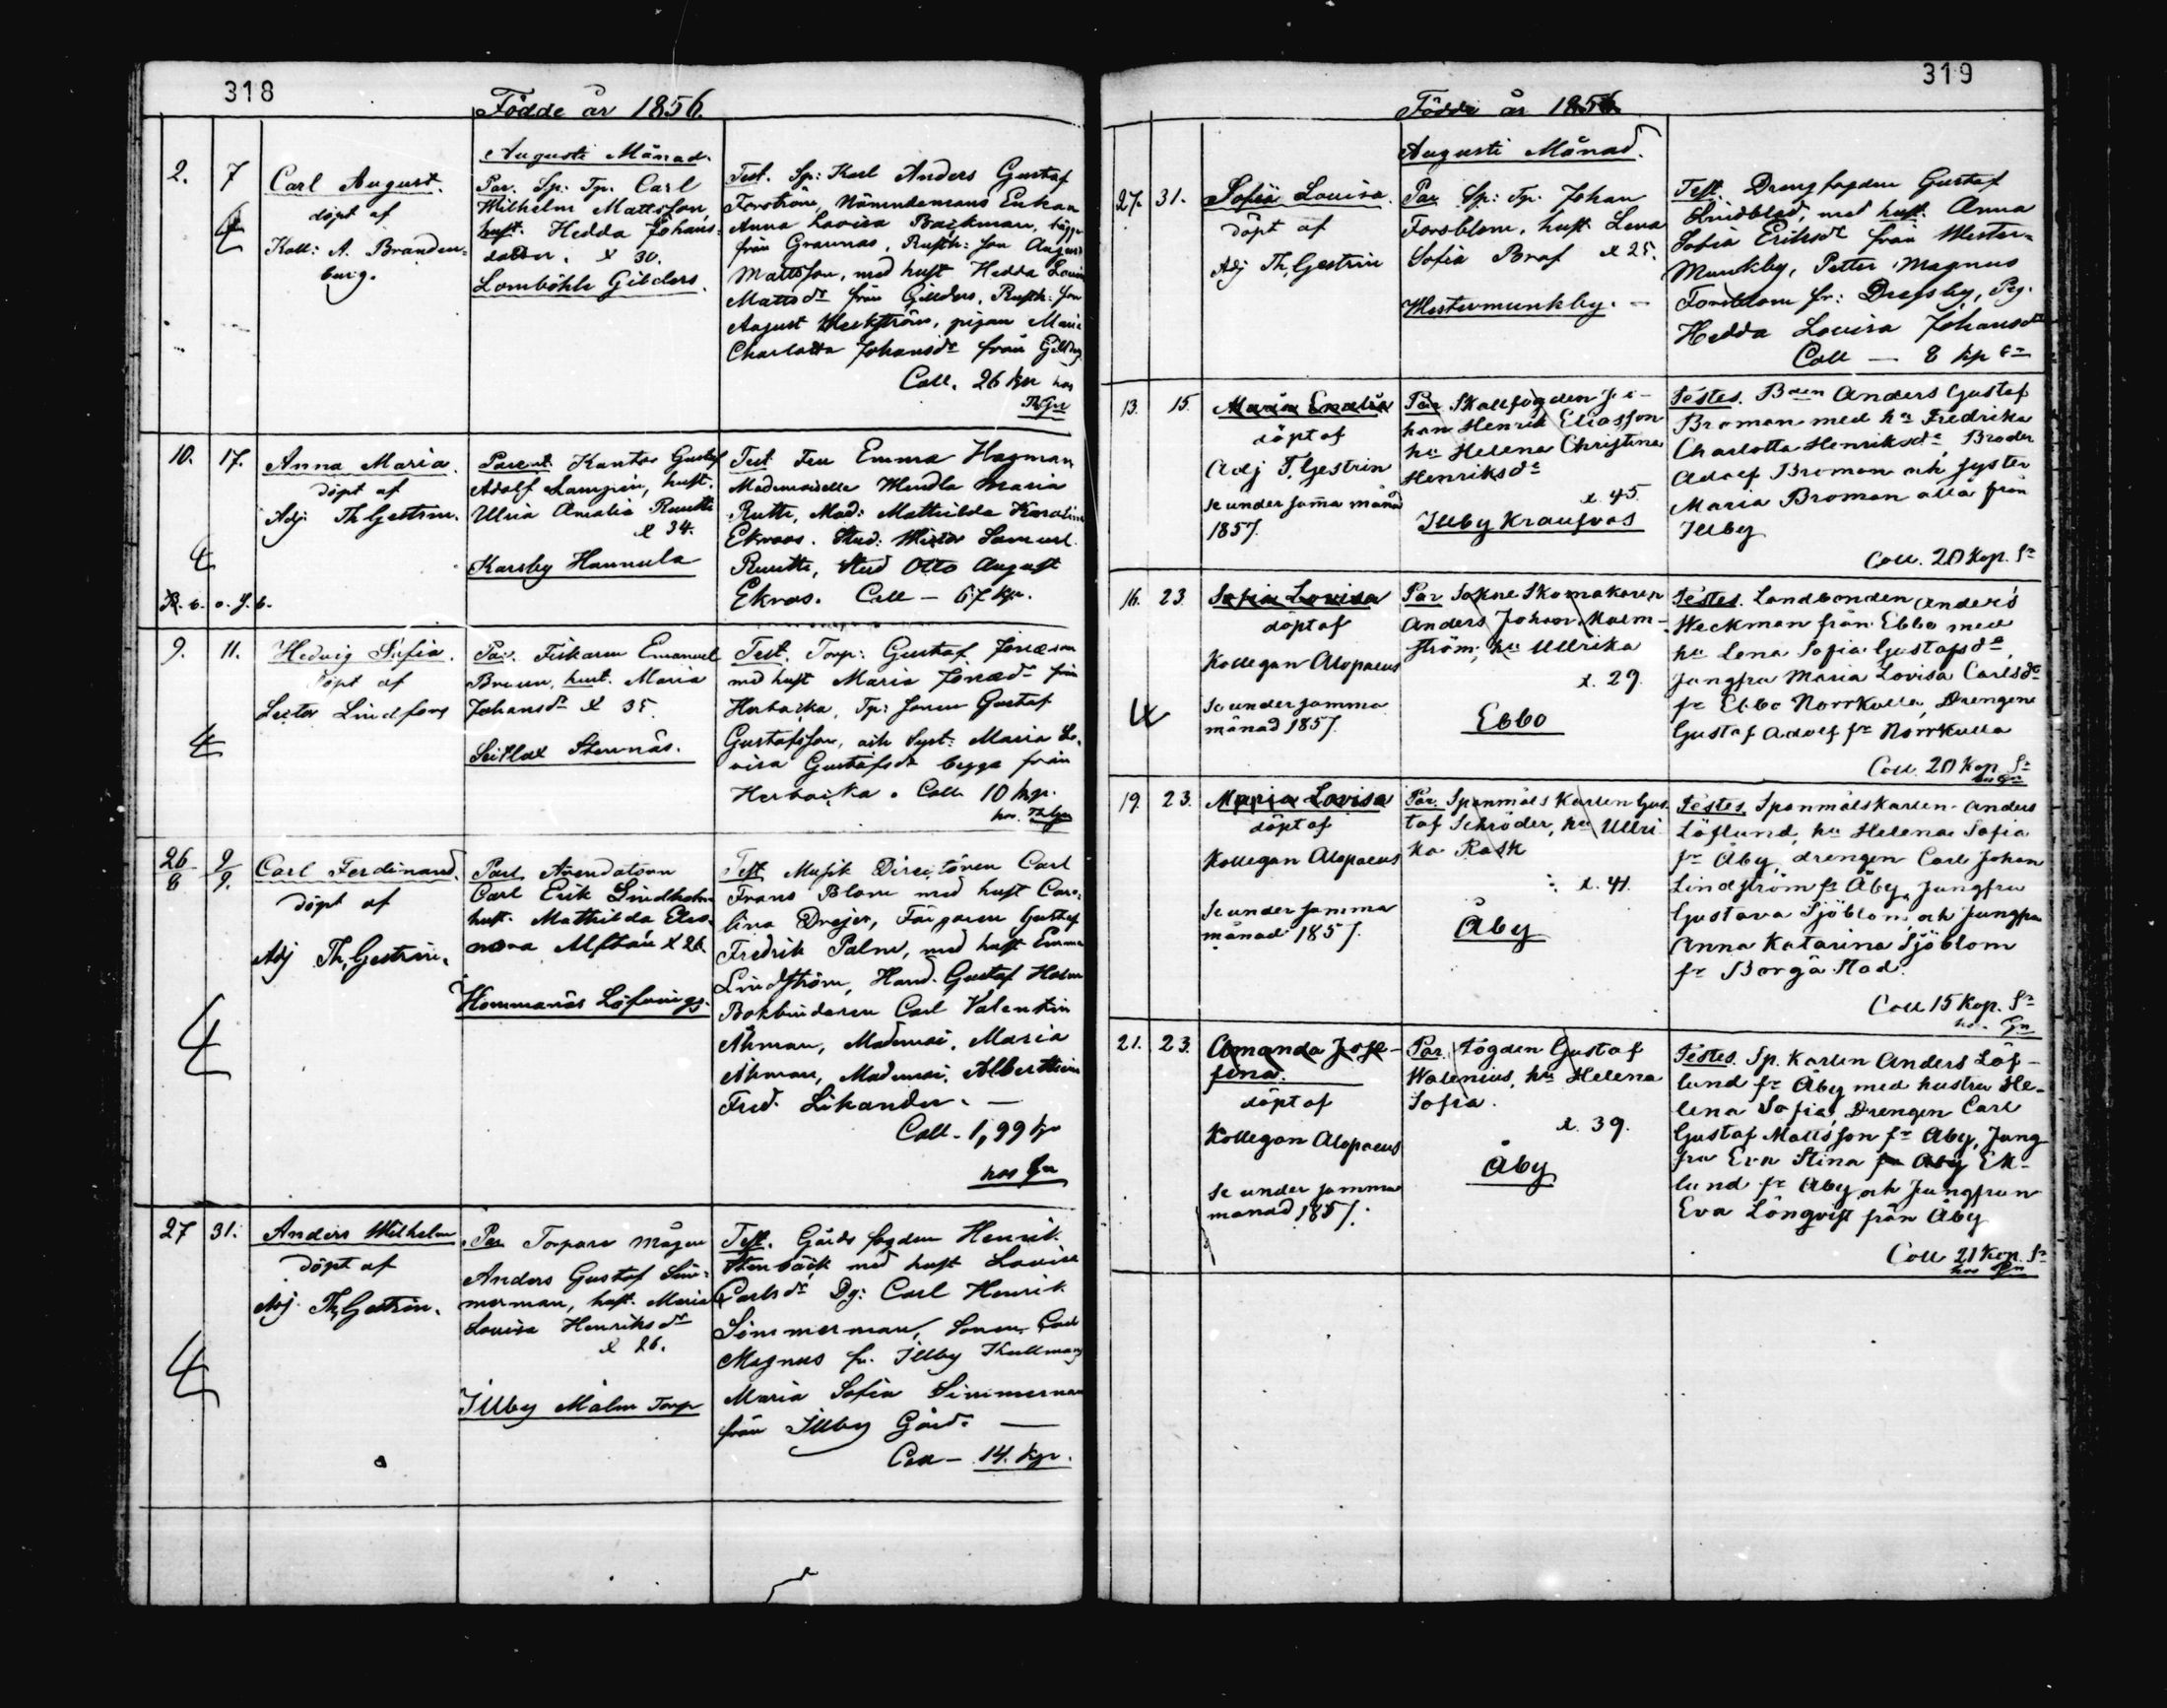 318
Födde år 1856.
Augusti Månad.
2. 7
Carl August.
döpt af
Koll: A. Branden-
burg.
Par. Sp: Tp. Carl
Wilhelm Mattsson,
hust. Hedda Johans-
dotter. x 30.
Lomböhle Gilders.
Test. Sp: Karl Anders Gustaf
Forström, Nämndemans Enkan
Anna Lovisa Backman, bägge
från Grannas, Rusth: son August
Mattsson, med hust Hedda Lovisa
Mattsdr från Gillders, Rusth: son
August Weckström, pigan Maria
Charlotta Johansdr från
Coll. 26 kp hos
10. 17.
Anna Maria.
döpt af
Adj Th Gestrin.
R. b. o. f. b.
Parent. Kantor Gustaf
Adolf Lampén, hust.
Ulrica Amalia Ruuth
x 34.
Karsby Hannula
Test Fru Emma Hagman
Mademoiselle Wendla Maria
Ruuth, Mad: Mathilda Karolina
Ekroos. Stud: Samuel
Ruuth, Stud Otto August
Ekroos. Coll – 67 kp.
9. 11.
Hedvig Sofia.
döpt af
Lector Lindfors
Par. Fiskaren Emanuel
Bruun, hust. Maria
Johansdr x 35.
Seitlax Stennäs.
Test. Torp: Gustaf Jonasson
med hust Maria Jonædr från
Herbacka, Tp: sonen Gustaf
Gustafsson, och Syst: Maria Lo-
visa Gustafsdr begge från
Herbacka. Coll 10 kp.
26/8 9/9.
Carl Ferdinand.
döpt af
Adj Th, Gestrin.
Part Arendatorn
Carl Erik Lindholm
hust. Mathilda Eleo-
nora Alfthan x 26.
Hommanäs Löfvings.
Test Musik Directören Carl
Frans Blom med hust Caro-
lina Drejer, Färgaren Gustaf
Fredrik Palm, med hust Emma
Lindström, Hand. Gustaf Holm
Bokbindaren Carl Valentin
Åhman, Mademoi. Maria
Åhman, Mademoi. Albertina
Fred. Sikander. –
Coll – 1,99 kp
hos Gn
27 31.
Anders Wilhelm
döpt af
Adj. Th, Gestrin.
Par Torpare mågen
Anders Gustaf Sim-
merman, hust. Maria
Lovisa Henriksdr
x 26.
Illby Malm Torp
Test. Gårds fogden Henrik
Stenbäck med hust Lovisa
Carlsdr Dg: Carl Henrik
Simmerman, Sonen Carl
Magnus fr. Illby Kullmans
Maria Sofia Simmerman
från Illby Gård. –
Coll – 14. kp.
319
Födde år 1856.
Augusti Månad.
27. 31.
Sofia Lovisa.
döpt af
Adj Th, Gestrin
Par Sp: Tp. Johan
Forsblom, hust Lena
Sofia Braf x 25.
Westermunkby. –
Test. Drengfogden Gustaf
Lindblad, med hust. Anna
Sofia Eriksdr från Wester-
Munkby, Petter Magnus
Forsblom fr: Dregsby, Pig.
Hedda Lovisa Johansdr
Coll – 8 kp Sr
13. 15.
Maria Enalia
döpt af
Adj T. Gestrin
Se under samma månad
1857.
Par Skallfogden Jo-
han Henrik Eliasson
hu Helena Christina
Henriksdr
x. 45.
Illby Kraufvas
Testes. Bden Anders Gustaf
Broman med hu Fredrika
Charlotta Henriksdr, Broder
Adolf Broman och syster
Maria Broman alla från
Illby
Coll. 20 Kop. Sr
16. 23.
Sofia Lovisa
döpt af
Kollegan Alopaeus
Se under samma
månad 1857.
Par Sokne Skomakaren
Anders Johan Malm-
ström, hu Ullrika
x. 29.
Ebbo
Testes. Landbonden Anders
Weckman från Ebbo med
hu Lena Sofia Gustafsdr,
Jungfru Maria Lovisa Carlsdr
fr Ebbo Norrkulla, Drengen
Gustaf Adolf fr Norrkulla
Coll. 20 Kop Sr
19. 23.
Maria Lovisa
döpt af
Kollegan Alopaeus
Se under samma
månad 1857.
Par. Spanmåls Karlen Gus-
taf Schröder, hu Ullri-
ka Rask
x. 41.
Åby
Testes. Spanmålskarlen Anders
Löflund, hu Helena Sofia
fr Åby, drengen Carl Johan
Lindström fr Åby, Jungfru
Gustava Sjöblom, och Jungfru
Anna Katarina Sjöblom
fr Borgå Stad.
Coll 15 Kop. Sr
hos Gn
21. 23.
Amanda Jose-
fina.
döpt af
Kollegan Alopaeus
Se under samma
månad 1857.
Par. Fogden Gustaf
Walenius, hu Helena
Sofia.
x. 39.
Åby
Testes. Sp. Karlen Anders Löf-
lund fr Åby med hustru He-
lena Sofia, Drengen Carl
Gustaf Mattsson fr Åby, Jung
fru Eva Stina fr Åby Ek-
lund fr Åby och Jungfrun
Eva Lönqvist från Åby
Coll 21 Kop. Sr
hos Gn